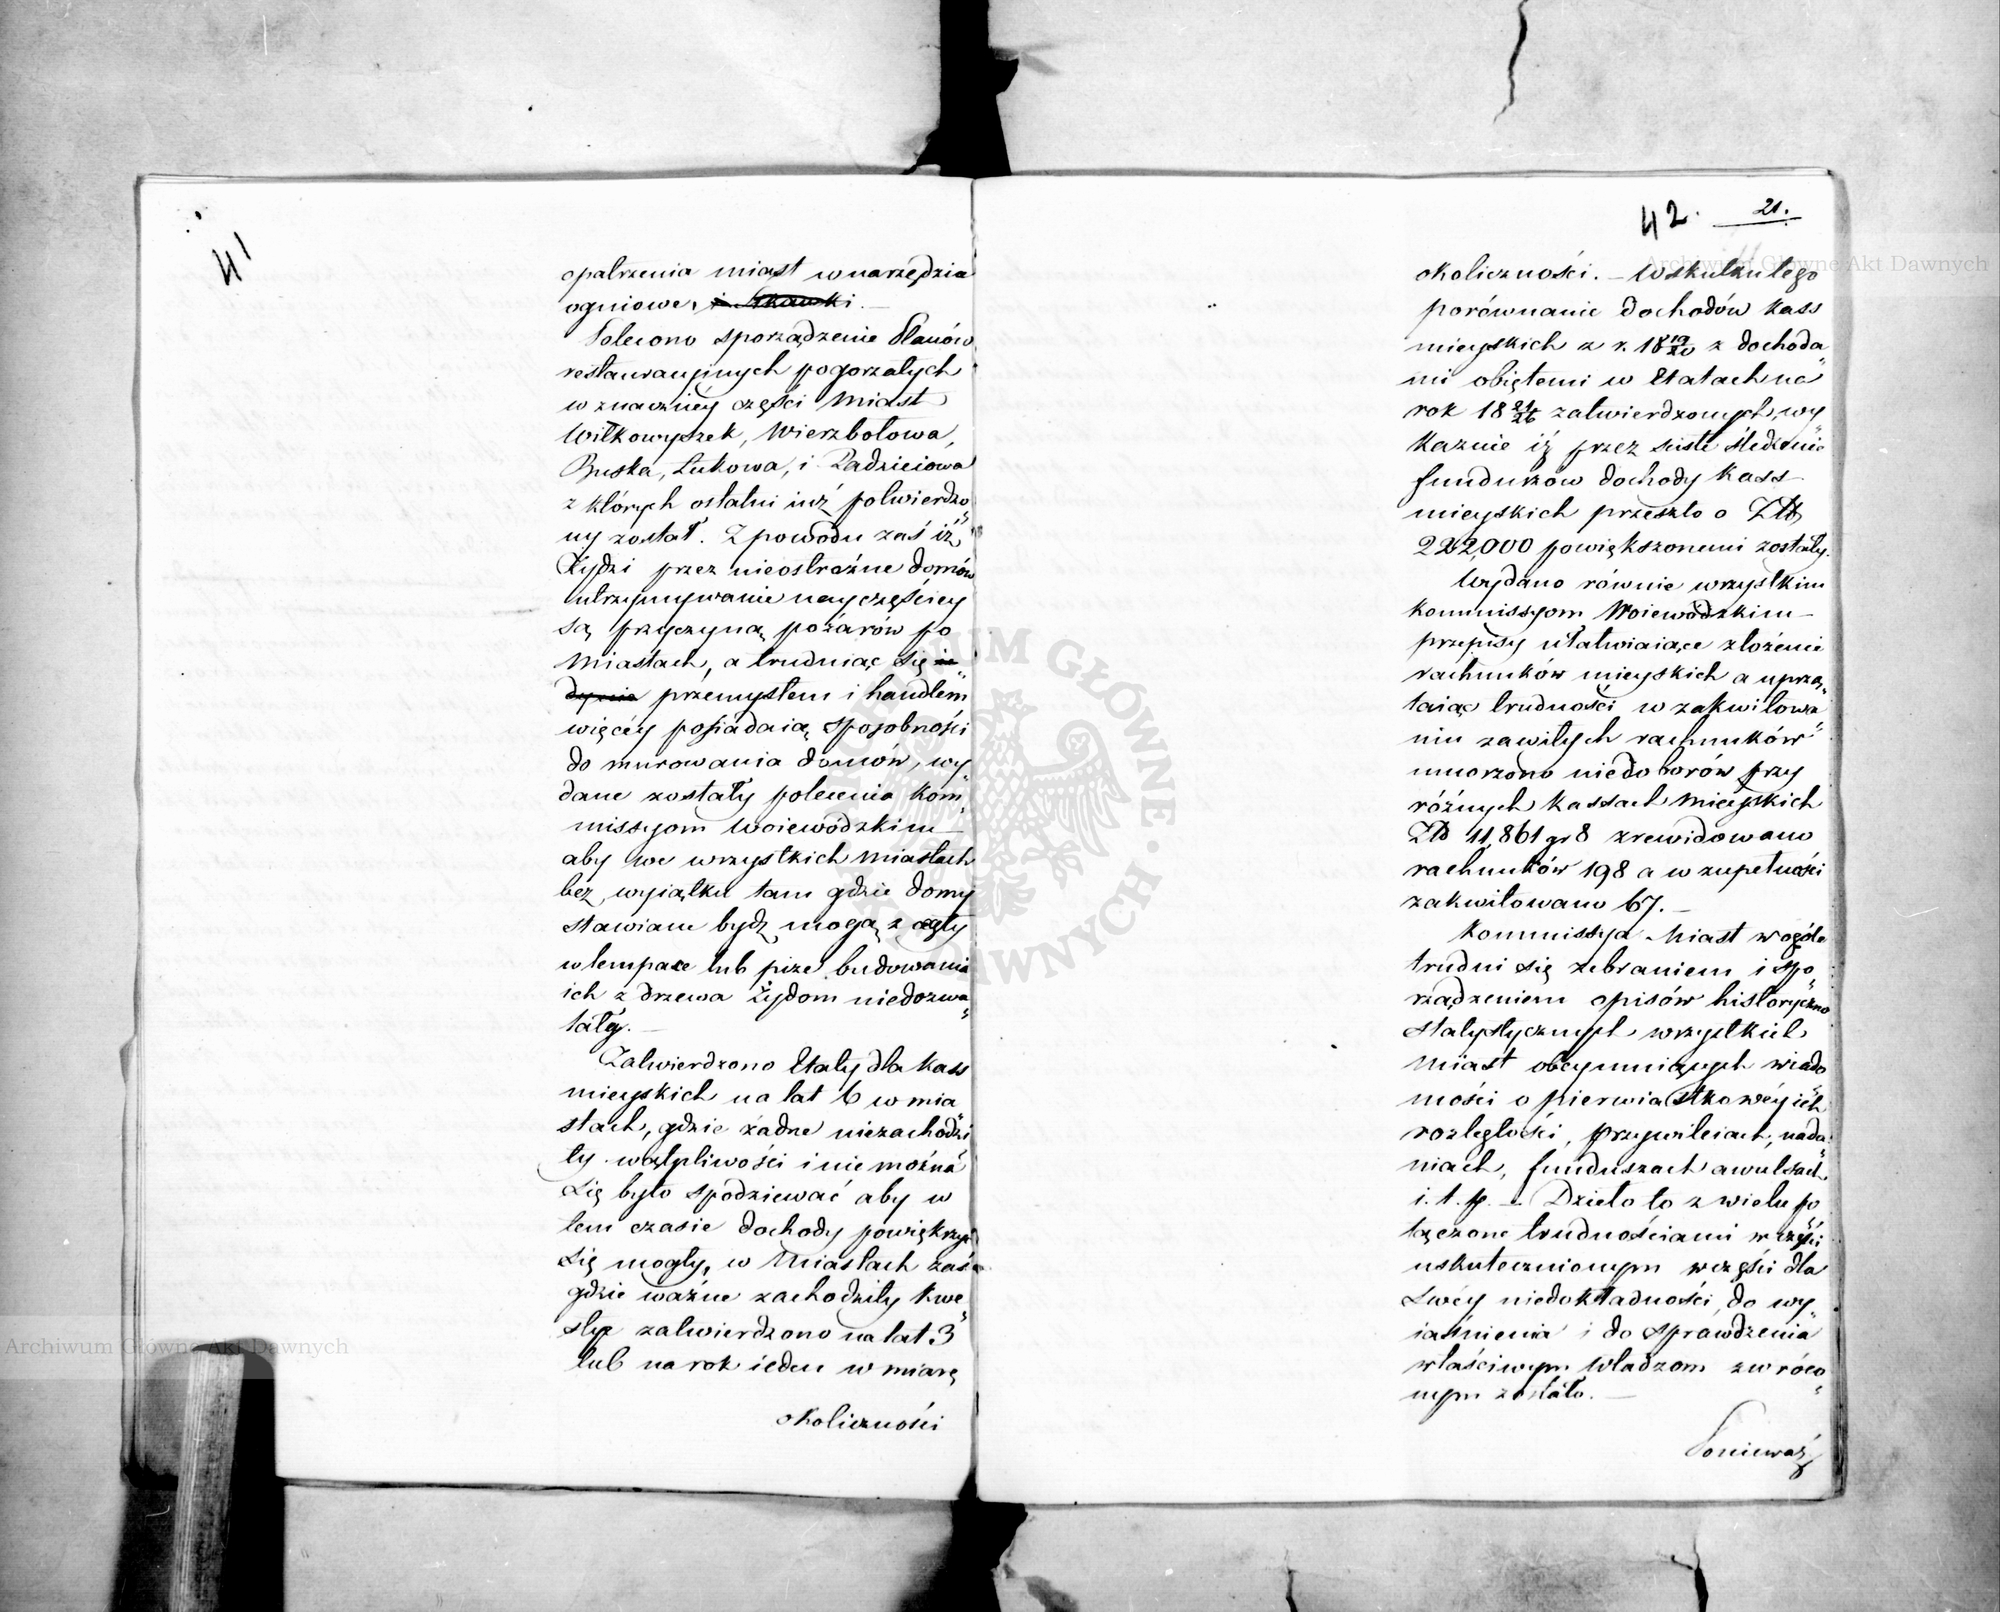 41
opatrzenia miast w narzędzia
ogniowe, i Sikawki. —
Polecono sporządzenie Planów
restauracyinych pogorzałych
w znacznéy części Miast
Wiłkowyszek, Wierzbołowa,
Buska, Łukowa, i Radzieiowa
z których ostatni iuż potwierdzo„
ny został. Z powodu zaś iż
Żydzi przez nieostrożne domów
utrzymywanie nayczęściey
są przyczyną pożarów po
Miastach, a trudniąc się ie„
dynie przemysłem i handlem
więcéy posiadaią sposobności
do murowania domów, wy„
dane zostały polecenia Kom„
missyom Woiewódzkim —
aby we wszystkich Miastach
bez wyiątku tam gdzie domy
stawiane bydź mogą z cegły
w lempace lub pize budowania
ich z drzewa Żydom niedozwa„
łały. —
Zatwierdzono Etaty dla Kass
mieyskich na lat 6 w mia„
stach, gdzie żadne niezachodzi„
ły wątpliwości i nie można
się było spodziewać aby w
tem czasie dochody powiększyć
się mogły, w Miastach zaś
gdzie ważne zachodziły kwe„
stye zatwierdzono na lat 3
lub na rok ieden w miarę
okoliczności
42. 21.
okoliczności. — W skutku tego
porównanie dochodów kass
mieyskich z r. 18 19/20 z dochoda„
mi obiętemi w Etatach na
rok 18 zatwierdzonych, wy„
kazuie iż przez ścisłe śledzenie
funduszów dochody Kass
mieyskich przeszło o Złł
222,000 powiększonemi zostały.
Wydano równie wszystkim
Kommissyom Woiewódzkim —
przepisy ułatwiaiące złożenie
rachunków mieyskich a uprzą„
taiąc trudności w zakwitowa„
niu zawiłych rachunków
umorzono niedoborów przy
różnych Kassach Mieyskich
Złł 11,861 gr 8 zrewidowano
rachunków 198 a w zupełności
zakwitowano 67. —
Kommissya Miast w ogóle
trudni się zebraniem i spo„
rządzeniem opisów historyczno
statystycznych wszystkich
Miast obeymuiących wiado„
mości o pierwiastkowéy ich
rozległości, przywileiach, nada„
niach, funduszach awulsach
i. t. p. — Dzieło to z wielu po„
łączone trudnościami w części
uskutecznionym w części dla
swéy niedokładności, do wy„
iaśnienia i do sprawdzenia
właściwym Władzom zwróco„
nym zostało. —
Ponieważ
Archiwum Główne Akt Dawnych
Archiwum Główne Akt Dawnych
ARCHIWUM GŁÓWNE AKT DAWNYCH